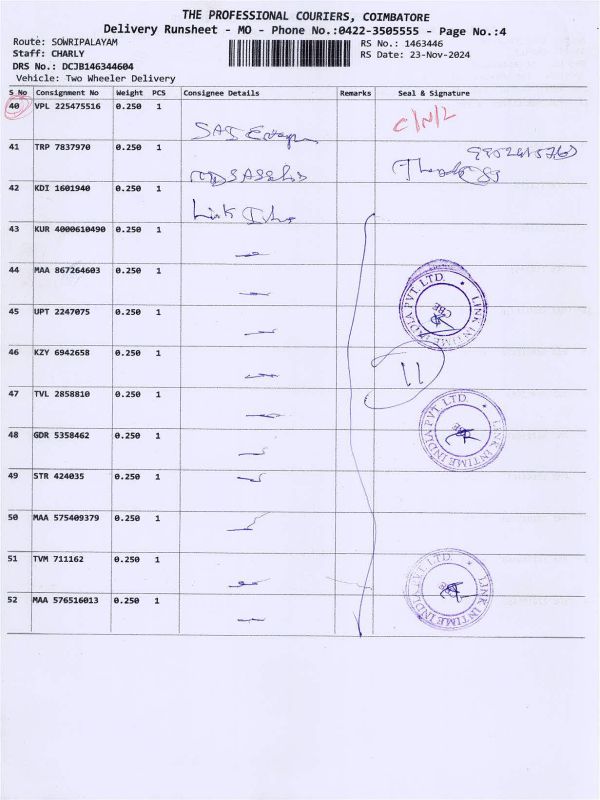 THE PROFESSIONAL COURIERS, COIMBATORE
Delivery Runsheet - MO - Phone No.:0422-3505555 - Page No.:4
Route: SOWRIPALAYAM
Staff: CHARLY
DRS No.: DCJB146344604
Vehicle: Two Wheeler Delivery
RS No.: 1463446
RS Date: 23-Nov-2024
S No Consignment No Weight PCS Consignee Details Remarks Seal & Signature
40 VPL 225475516 0.250 1 C/N/L
41 TRP 7837970 0.250 1
42 KDI 1601940 0.250 1 Link
43 KUR 4000610490 0.250 1
44 MAA 867264603 0.250 1
45 UPT 2247075 0.250 1
46 KZY 6942658 0.250 1
47 TVL 2858810 0.250 1
48 GDR 5358462 0.250 1
49 STR 424035 0.250 1
50 MAA 575409379 0.250 1
51 TVM 711162 0.250 1
52 MAA 576516013 0.250 1
11
LINK INTIME INDIA PVT. LTD. CBE
LINK INTIME INDIA PVT. LTD.
LINK INTIME INDIA PVT. LTD.